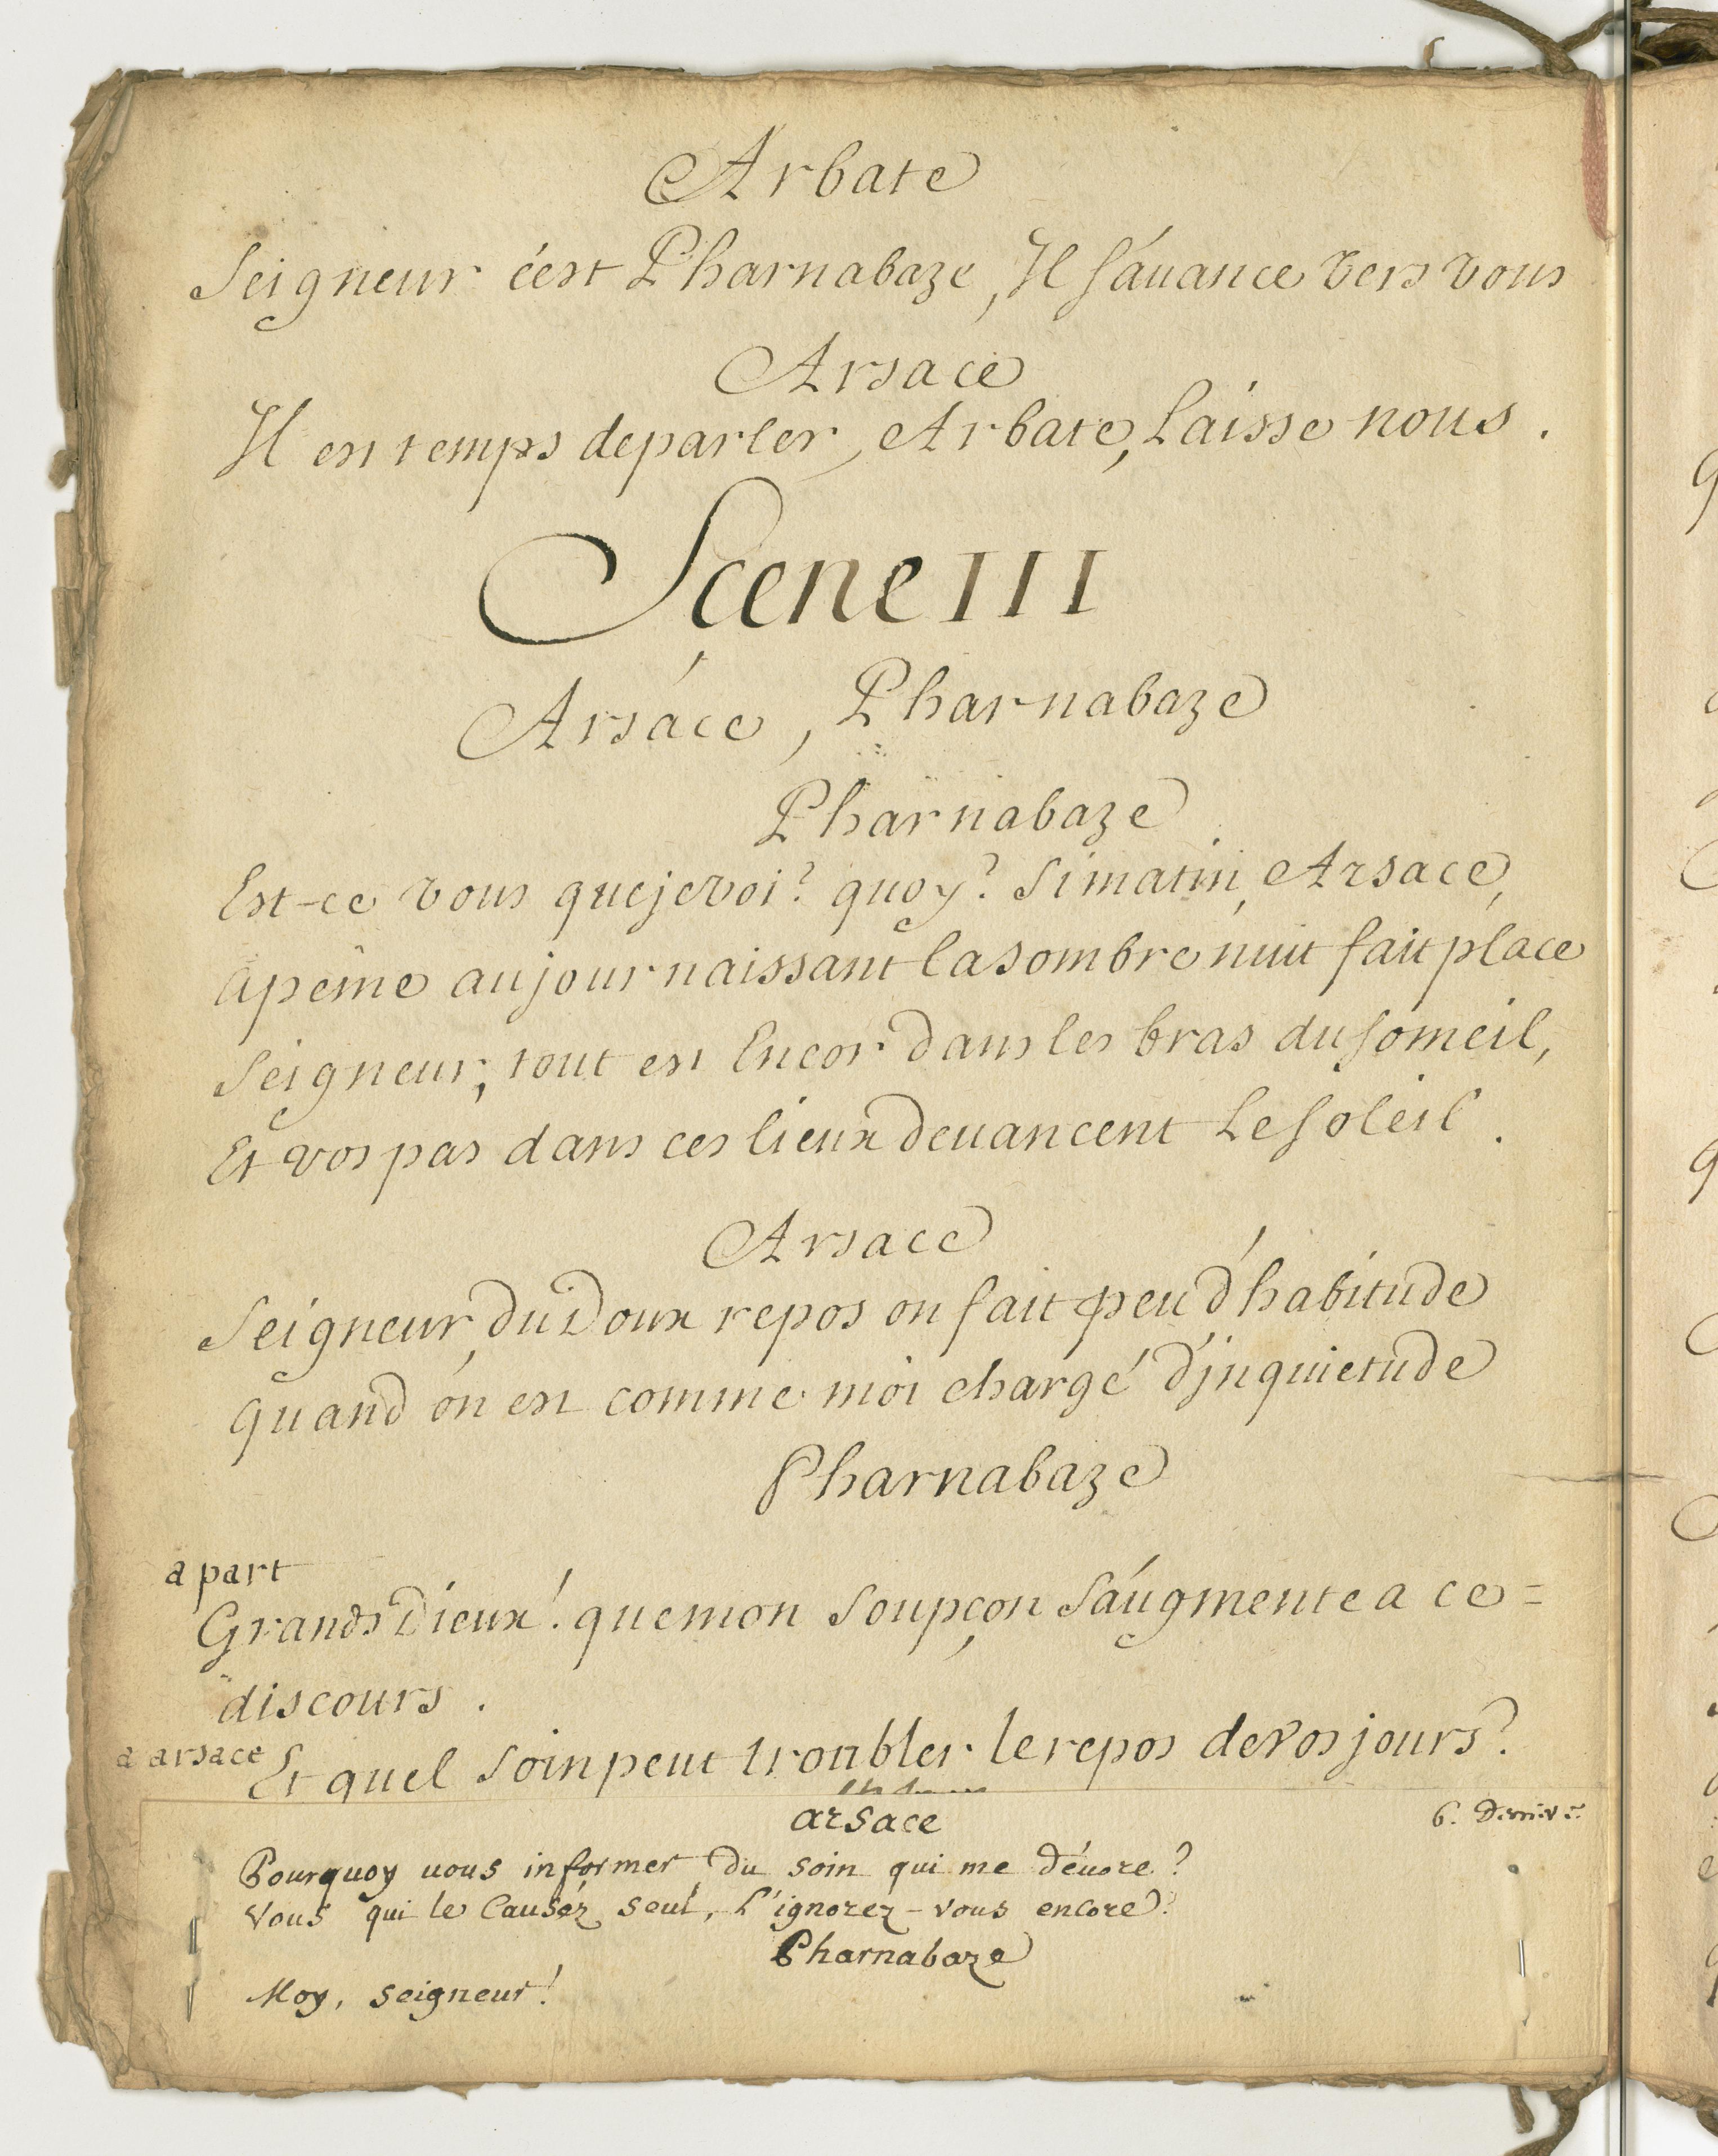 Arbate
Seigneur c'est Pharnabaze, Il s'auance vers vous
Arsace
Il est temps de parler, Arbate, Laisse nous.
Scene III
Arsace, Pharnabaze
Pharnabaze
Est-ce vous que je voi? quoy? si matin, Arsace,
à peine au jour naissant la sombre nuit fait place
Seigneur, tout est Encor dans les bras du someil,
Et vos pas dans ces lieux deuancent Le soleil.
Arsace
Seigneur, du Doux repos on fait peu d'habitude
quand on est comme moi chargé d'jnquietude
Pharnabaze
a part
Grands Dieux! que mon soupçon s'augmente a ce=
discours.
a arsace Et quel soin peut troubler le repos de vos jours?
arsace
6.
Pourquoy uous informer du soin qui me déuore?
Vous qui le Causéz seul, l'ignorez-vous encore?
Pharnabaze
Moy, seigneur!